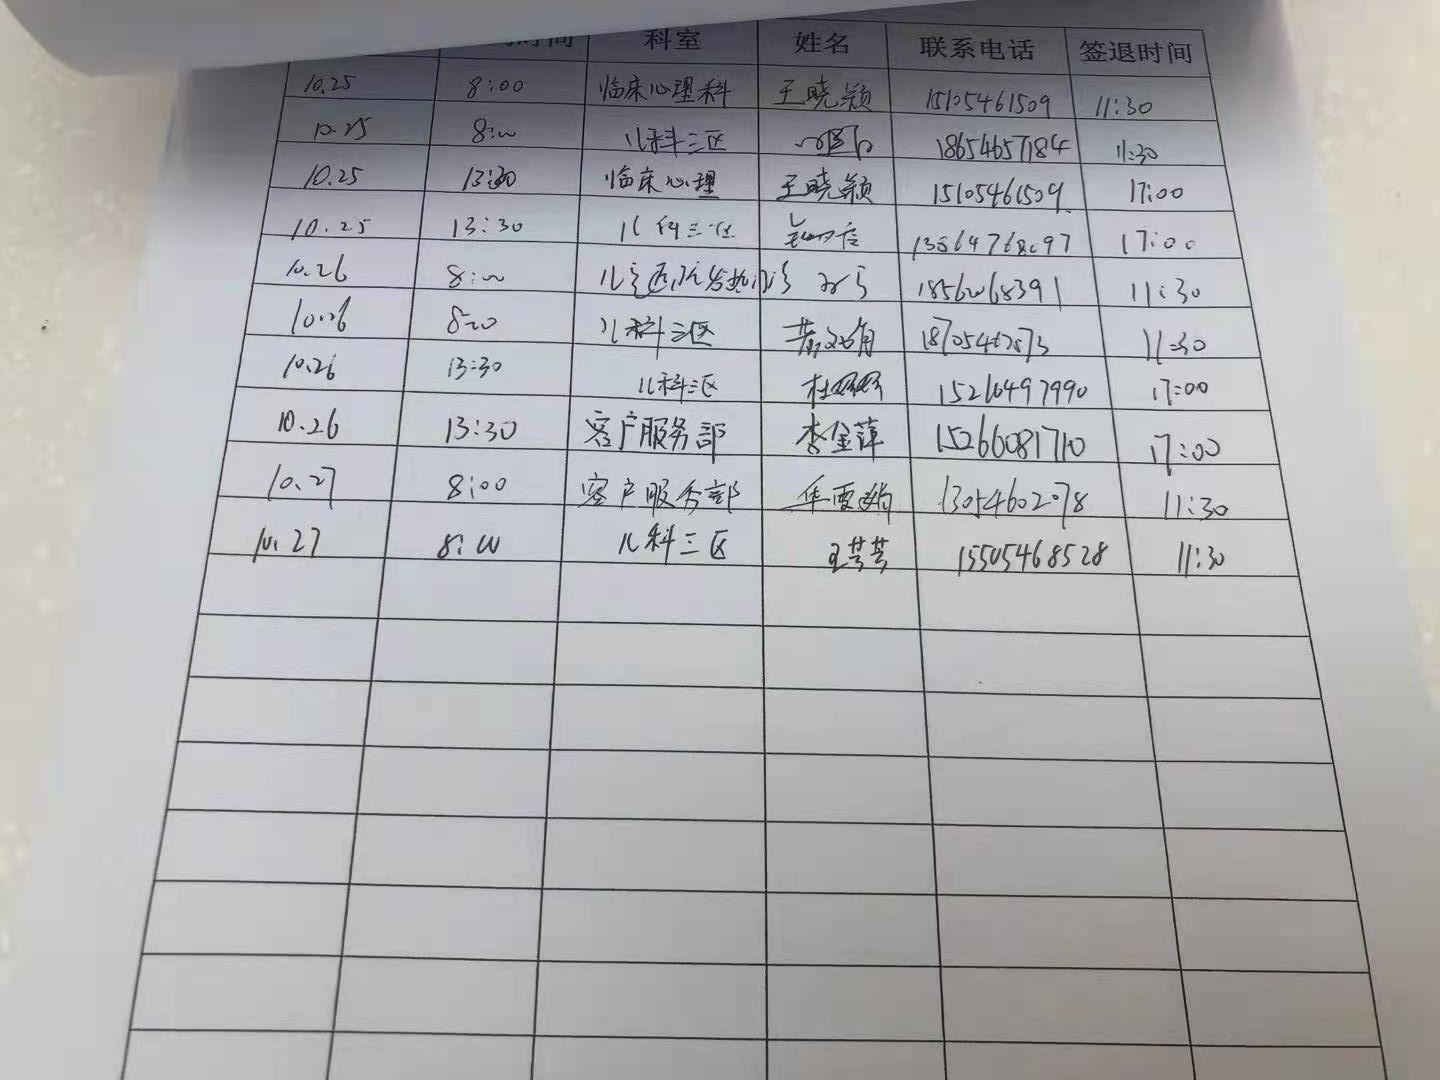 时间 科室 姓名 联系电话 签退时间
10.25 8:00 临床心理科 王晓颖 15105461509 11:30
10.25 8:00 儿科三区 18654657184 11:30
10.25 13:30 临床心理 王晓颖 15105461509 17:00
10.25 13:30 儿科三区 13864768097 17:00
10.26 8:00 11:30
10.26 8:00 儿科三区 11:30
10.26 13:30 儿科三区 15216497990 17:00
10.26 13:30 客户服务部 李金萍 15266081710 17:00
10.27 8:00 客户服务部 13054602078 11:30
10.27 8:00 儿科三区 王芸芸 15505468528 11:30